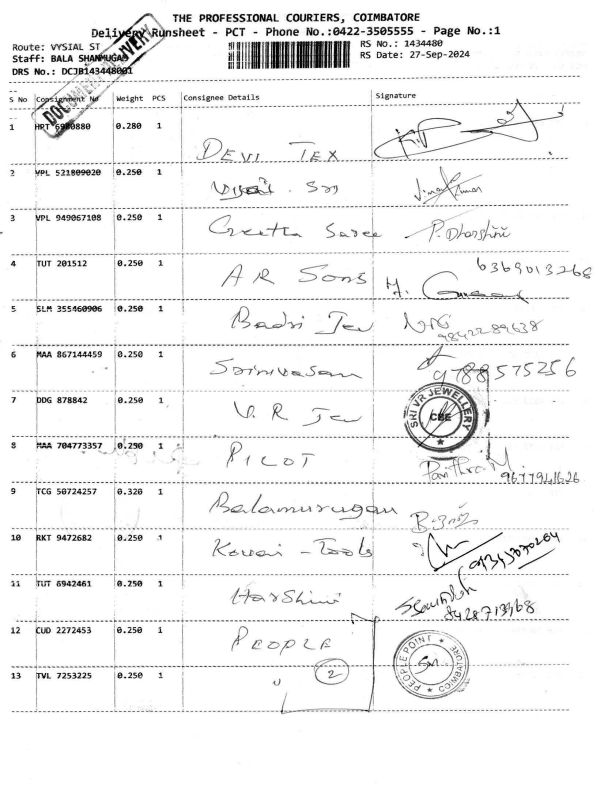 THE PROFESSIONAL COURIERS, COIMBATORE
Delivery Runsheet - PCT - Phone No.:0422-3505555 - Page No.:1
Route: VYSIAL ST
RS No.: 1434480
Staff: BALA SHANMUGAM
RS Date: 27-Sep-2024
DRS No.: DCJB143448001
S No Consignment No Weight PCS Consignee Details Signature
1 HPT 6980880 0.280 1 DEVI TEX
2 VPL 521809020 0.250 1
3 VPL 949067108 0.250 1 Geetha Saree P. Dharshini
4 TUT 201512 0.250 1 AR Sons 6369013268
5 SLM 355460906 0.250 1 Badri Jew 9842289638
6 MAA 867144459 0.250 1 Srinivasan 9788575256
7 DDG 878842 0.250 1 V.R Jew SRI VR JEWELLERY CBE
8 MAA 704773357 0.250 1 PILOT Pavithra.M. 9677941626
9 TCG 50724257 0.320 1 Balamurugan
10 RKT 9472682 0.250 1 Kovai - Tools
11 TUT 6942461 0.250 1 Harshini 8428713968
12 CUD 2272453 0.250 1 PEOPLE PEOPLE POINT COIMBATORE
13 TVL 7253225 0.250 1 " 2